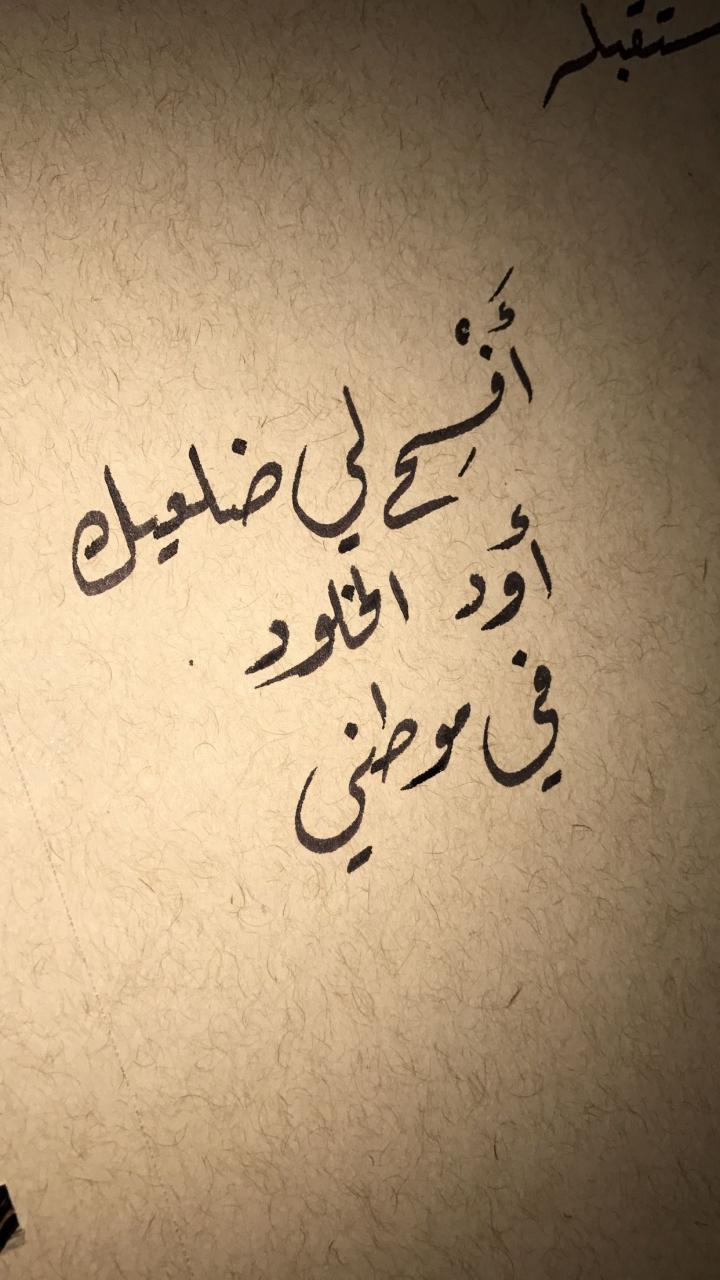 ستقبله
أَفْسِح لي ضلعيك
أود الخلود
في موطني